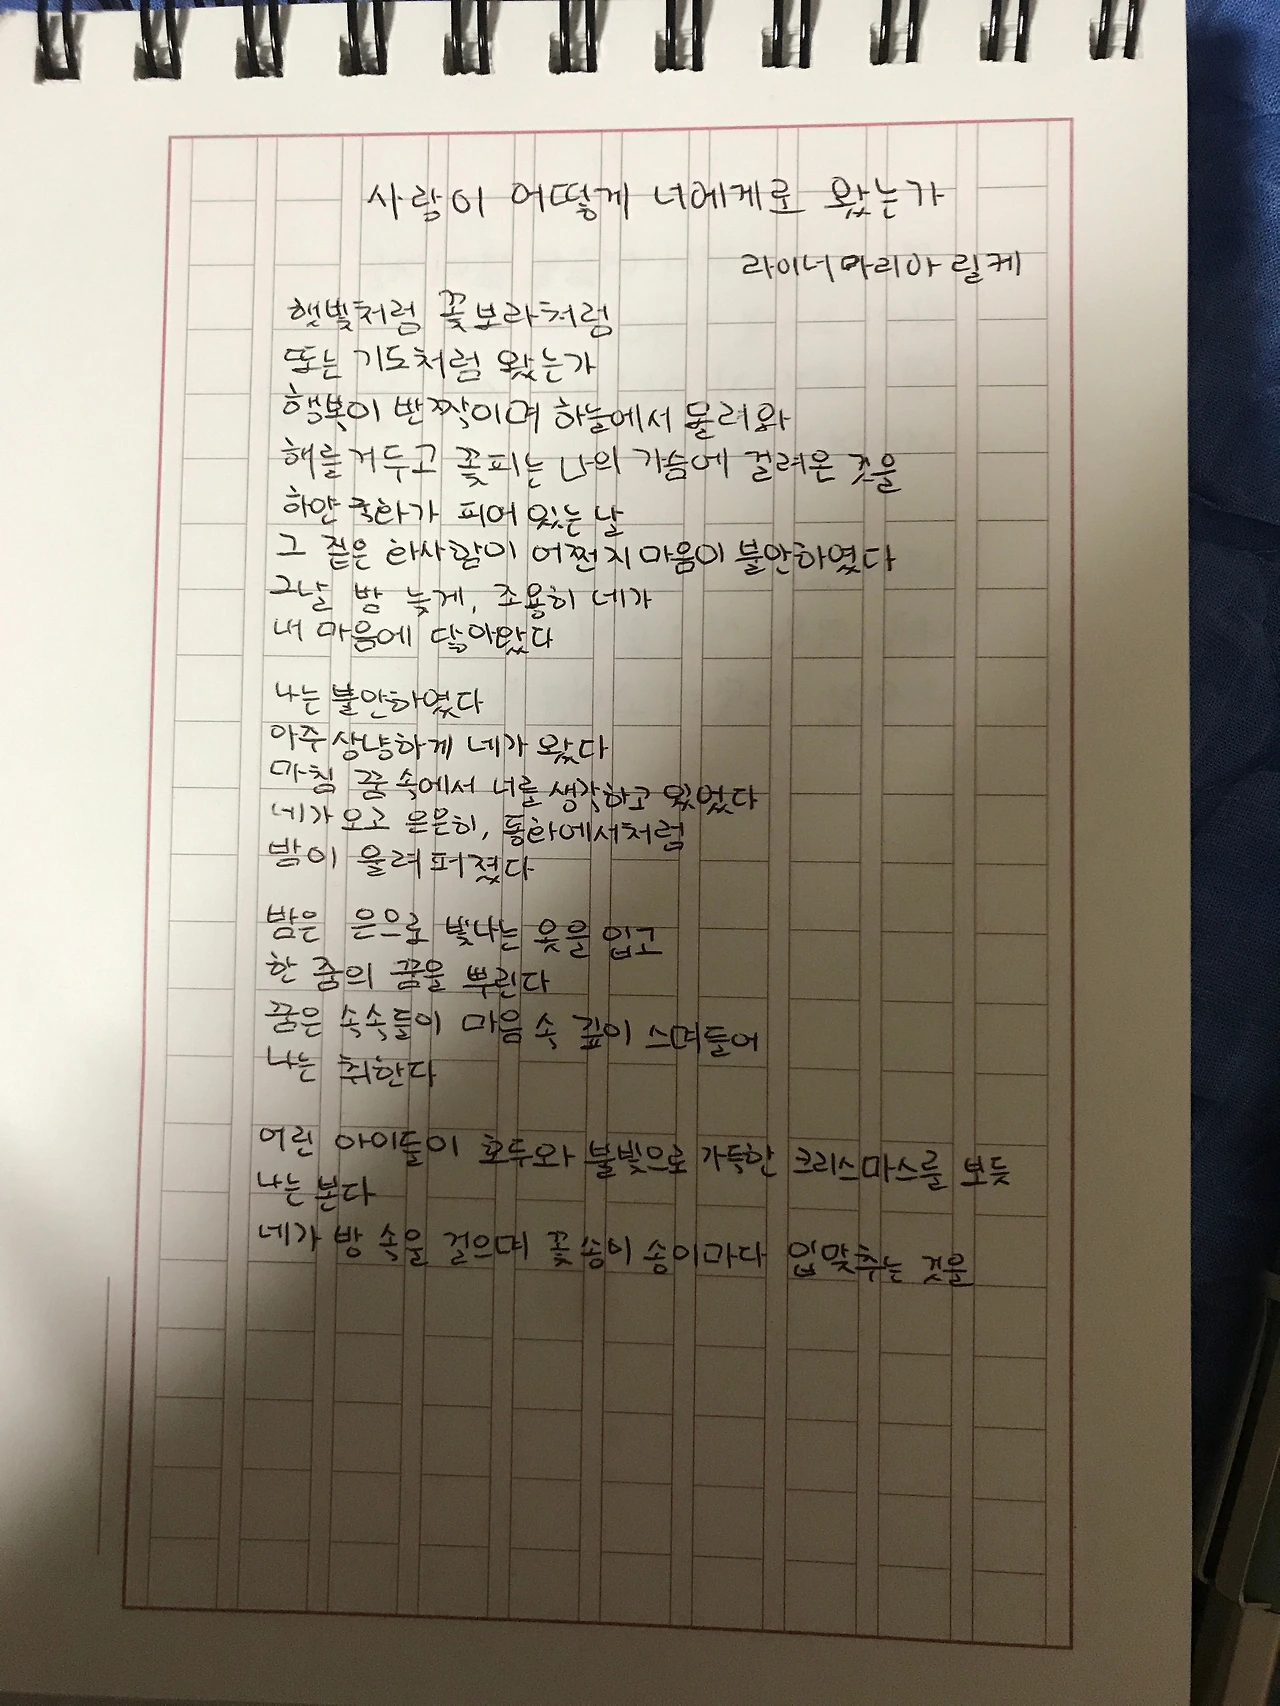 사랑이 어떻게 너에게로 왔는가
라이너 마리아 릴케
햇빛처럼 꽃보라처럼
또는 기도처럼 왔는가
행복이 반짝이며 하늘에서 몰려와
해를 거두고 꽃피는 나의 가슴에 걸려온 것을
하얀 국화가 피어 있는 날
그 짙은 화사함이 어쩐지 마음이 불안하였다
그날 밤 늦게, 조용히 네가
내 마음에 닿아왔다
나는 불안하였다
아주 상냥하게 네가 왔다
마침 꿈 속에서 너를 생각하고 있었다
네가 오고 은은히, 동화에서처럼
밤이 울려 퍼졌다
밤은 은으로 빛나는 옷을 입고
한 줌의 꿈을 뿌린다
꿈은 속속들이 마음 속 깊이 스며들어
나는 취한다
어린 아이들이 호두와 불빛으로 가득한 크리스마스를 보듯
나는 본다
네가 밤 속을 걸으며 꽃 송이 송이마다 입맞추는 것을